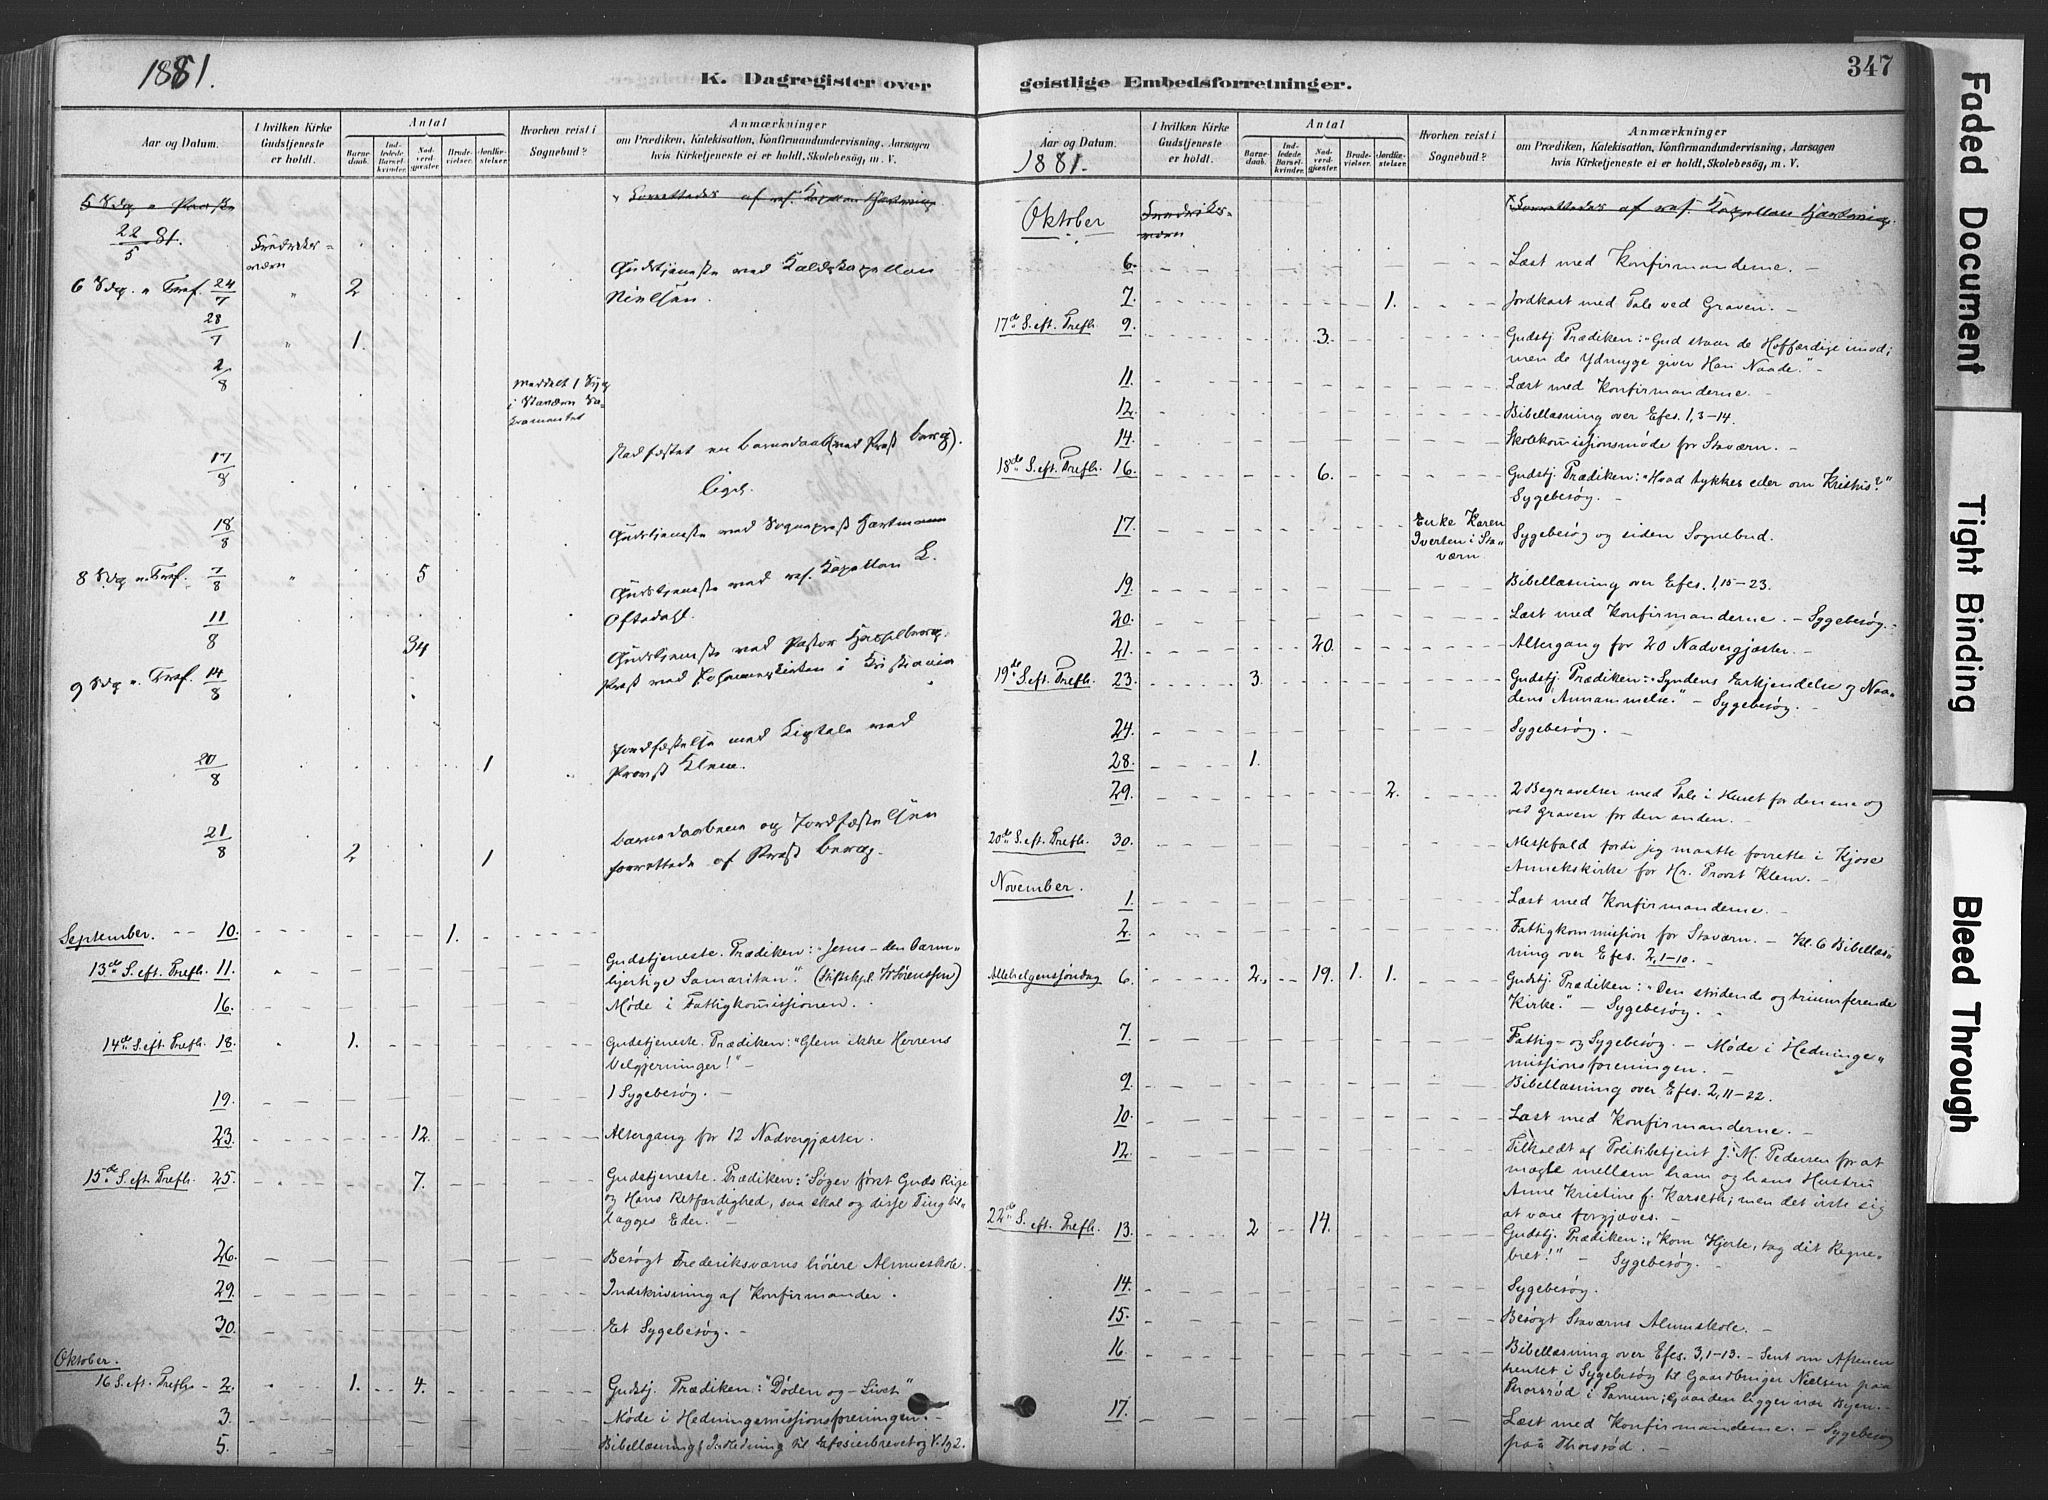 1881.
K. Dagregister over
Aar og Datum.
I hvilken Kirke Gudstjeneste er holdt.
Antal
Barnedaab.
Indledede Barselkvinder.
Nadverdgjester.
Brudevielser.
Jordfæstelser.
Hvorhen reist i Sognebud?
Anmærkninger
om Prædiken, Katekisation, Konfirmandundervisning, Aarsagen
hvis Kirketjeneste ei er holdt, Skolebesøg, m. V.
22/5 81.
Frederiksværn
6 Sdg. e. Tref. 24/7 " 2
Gudstjeneste ved Kaldskapellan
Nielsen.
28/7 " 1.
2/8
meddelt 1 Syg
i Stavern Sakramentet
17/8
Stadfæstet en Barnedaab (ved Præst Berg).
18/8
ligel.
8 Sdg e. Tref. 7/8 " 5
Gudstjeneste ved Sognepræst Hartmann
11/8 34
Gudstjeneste ved res. Kapellan L.
Oftedahl.
9 Sdg e. Tref. 14/8
Gudstjeneste ved Pastor Hasselberg.
Præst ved Johanneskirken i Kristiania
20/8 1
Jordfæstelse med Ligtale ved
Provst Klem.
21/8 2 1
Barnedaabene og Jordfæstelsen
forrettede af Præst Berg.
September. 10. 1.
13de S. eft. Trefh. 11.
Gudstjeneste. Prædiken: "Jesus – den Barmhjertige Samaritan."
16. Møde i Fattigkommissionen.
14de S. eft. Trefh. 18. 1.
Gudstjeneste. Prædiken: "Glem ikke Herrens
Velgjerninger!" –
19. 1 Sygebesøg. –
23. 12. Altergang for 12 Nadvergjæster.
15de S. eft. Trefh. 25. 7.
Gudstjeneste. Prædiken: "Søger først Guds Rige
og Hans Retfærdighed, saa skal og disse Ting tillægges Eder." –
26. Besøgt Frederiksværns höiere Almueskole.
29. Indskrivning af Konfirmander.
30. Et Sygebesøg. –
Oktober.
16 S. eft. Trefh. 2. 1. 4. Gudstj. Prædiken: "Døden og – Livet"
3. Møde i Hedningemissionsforeningen. –
5. Bibellæsning; Indledning til Efesierbrevet og V. 1 g 2.
347
geistlige Embedsforretninger.
Aar og Datum.
1881.
I hvilken Kirke Gudstjeneste er holdt.
Antal
Barnedaab.
Indledede Barselkvinder.
Nadverdgjester.
Brudevielser.
Jordfæstelser.
Hvorhen reist i Sognebud?
Anmærkninger
om Prædiken, Katekisation, Konfirmandundervisning, Aarsagen
hvis Kirketjeneste ei er holdt, Skolebesög, m. V.
Oktober
Frederiksværn
6. Læst med Konfirmanderne. –
7. 1. Jordkast med Tale ved Graven. –
17de S. eft. Trefh. 9. 3. Gudstj. Prædiken: "Gud staar de Hoffærdige imod;
men de Ydmyge giver Han Naade." –
11. Læst med Konfirmanderne.
12. Bibellæsning over Efes. 1, 3–14.
14. Skolekommissionsmøde for Staværn. –
18de S. eft. Trefh. 16. 6. Gudstj. Prædiken: "Hvad tykkes eder om Kristus?"
Sygebesøg. –
17. Enke Karen
Iversen i Staværn
Sygebesøg og siden Sognebud.
19. Bibellæsning over Efes. 1, 15–23.
20. Læst med Konfirmanderne. – Sygebesøg. –
21. 20. Altergang for 20 Nadvergjæster. –
19de S. eft. Trefh. 23. 3. Gudstj. Prædiken: "Syndens Erkjendelse og Naadens Annammelse." – Sygebesøg. –
24. Sygebesøg. –
28. 1.
29. 2. 2 Begravelser med Tale i Huset for den ene og
ved Graven for den anden. –
20de S. eft. Trefh. 30. Messefald fordi jeg maatte forrette i Kjose
Annekskirke for Hr. Provst Klem. –
November.
1. Læst med Konfirmanderne. –
2. Fattigkommission for Staværn. – Kl. 6 Bibellæsning over Efes. 2, 1–10. –
Allehelgenssöndag 6. 2. 19. 1. 1. Gudstj. Prædiken: "Den stridende og triumferende
Kirke." – Sygebesøg. –
7. Fattig- og Sygebesøg. – Møde i Hedningemissionsforeningen. –
9. Bibellæsning over Efes. 2, 11–22.
10. Læst med Konfirmanderne. –
12. Tilkaldt af Politibetjent J. M. Pedersen for at
mægle mellem ham og hans Hustru
Anne Kristine f. Karseth; men det viste sig
at være forgjæves. –
22de S. eft. Trefh. 13. 2 14. Gudstj. Prædiken: "Kom Hjerte, tag dit Regnebret!" – Sygebesøg. –
14. Sygebesøg. –
15. Besøgt Staværns Almueskole. –
16. Bibellæsning over Efes. 3, 1–13. – Sent om Aftenen
hentet i Sygebesøg til Gaardbruger Nielsen paa
Thorsrød i Tanum; Gaarden ligger nær Byen. –
17. Læst med Konfirmanderne. – Sygebesøg
paa Thorsrød. –
Faded Document
Tight Binding
Bleed Through